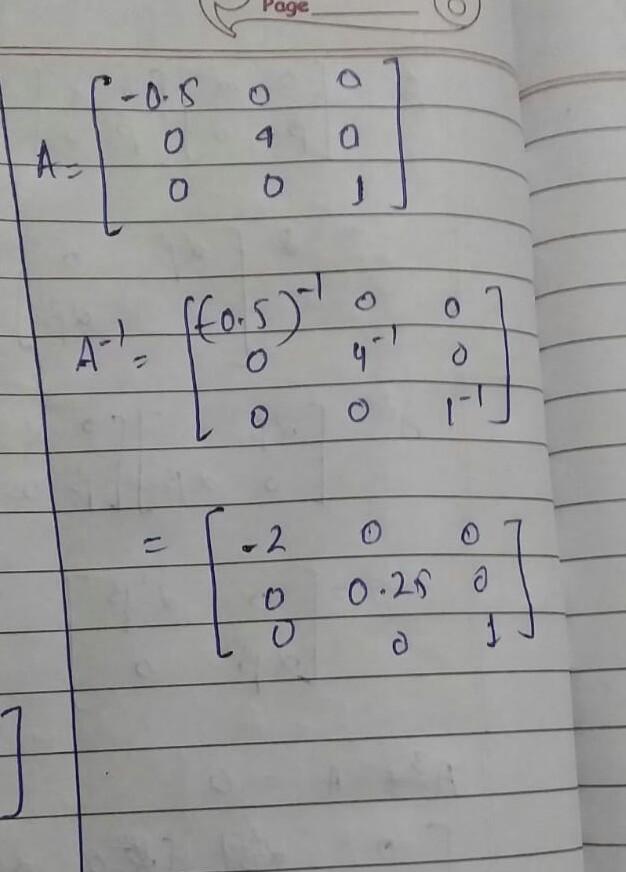 Page
A = [ -0.5 0 0
0 4 0
0 0 1 ]
A⁻¹ = [ (-0.5)⁻¹ 0 0
0 4⁻¹ 0
0 0 1⁻¹ ]
= [ -2 0 0
0 0.25 0
0 0 1 ]
]